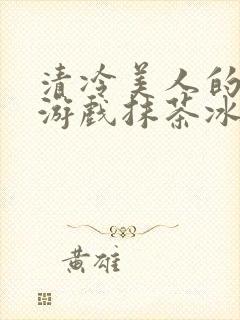 清冷美人的
游戏抹茶冰
黄雄